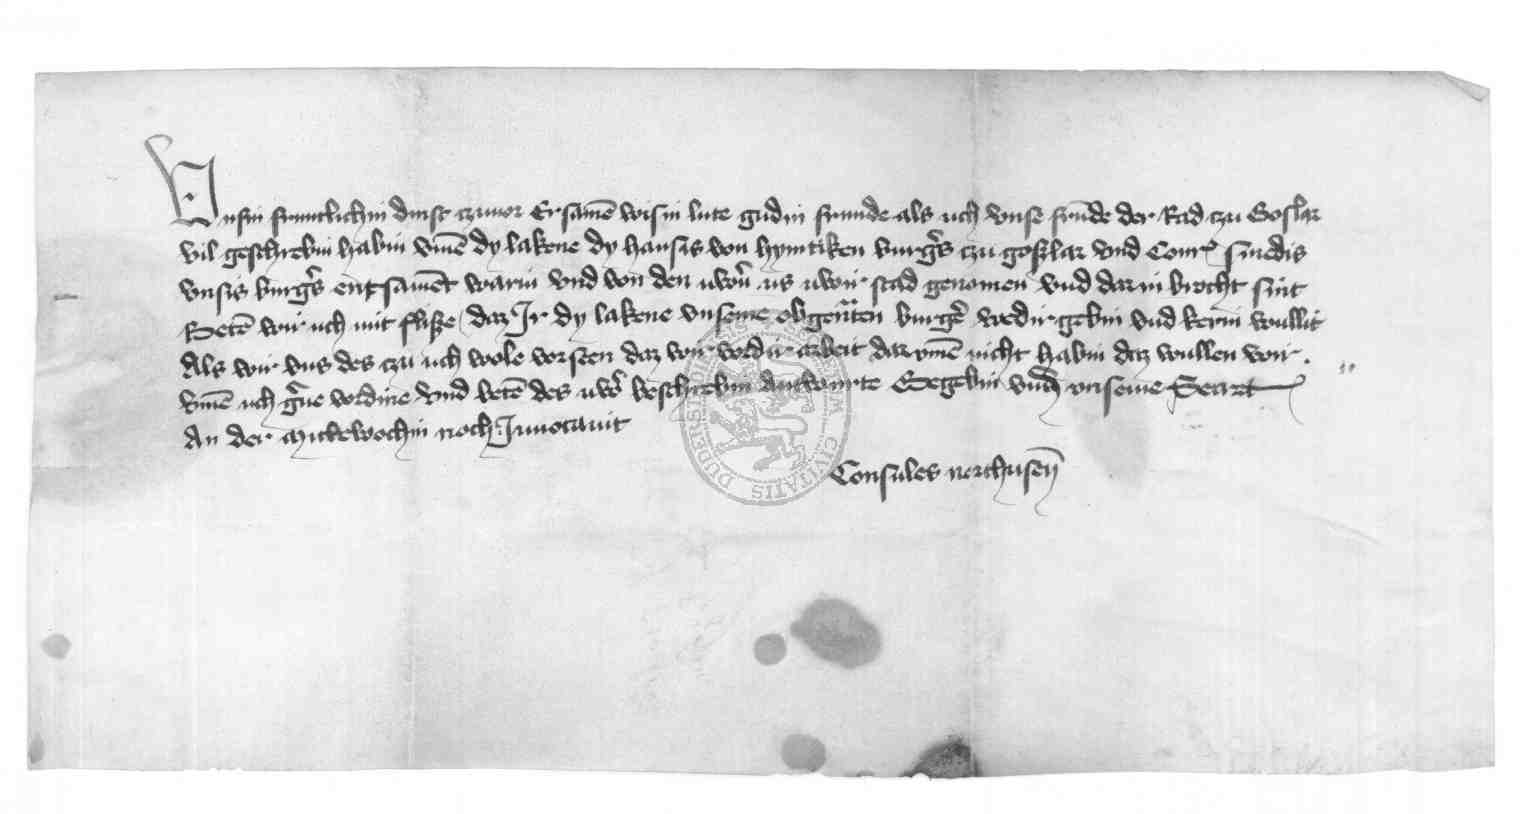 Unsin fruntlichin dinst czuvor Ersamē wisin lute gudin frunde als uch unse frūde der Rad czu Goslar
vil geschrebin habin umē dy lakene dy hansis von hymtiken burgˢs czu goslar und Conrˢ
unsis burgˢs entsamēt warin und von den uwˢn us uwir stad genomen und dar in brocht sint
Betē wir uch mit flisze daz Ir dy lakene unseme obgenāten burgˢ wedir gebin und kerin wullit
Als wir uns des czu uch wole vorseen daz wir vordir arbeit dar umē nicht habin daz wullen wir
umē uch gˢne vordine und betē des uwˢ beschrebin Antwurte Gegebin undˢ unseme Secret
An der mittewochin noch Invocavit
Consules northusen̄
SIGILLUM CIVITATIS DUDERST